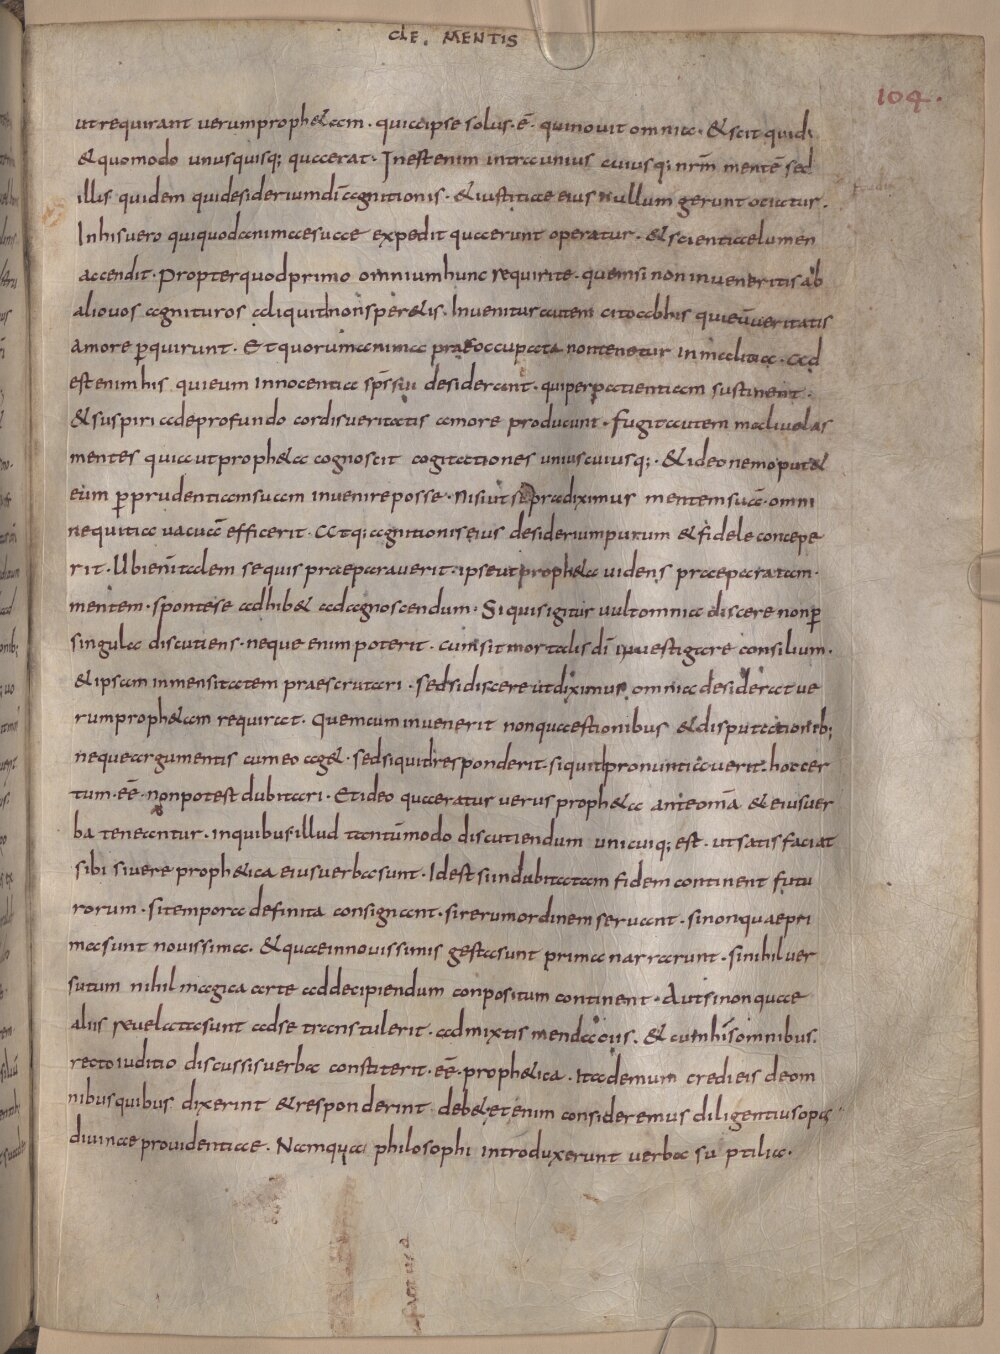 CLE. MENTIS
104.
ut requirant uerum proph&am. quia ipse solus. ē. qui nouit omnia. & scit quid
& quomodo unusquisq; quaerat. Inest enim intra unius cuiusq; nr̄m mentē sed
illis quidem qui desiderium dī agnitionis. & iustitiae eius nullum gerunt otiatur.
In his uero qui quod animae suae expedit quaerunt operatur. & scientiae lumen
accendit. Propter quod primo omnium hunc requirite. quem si non inueneritis ab
alio uos agnituros aliquid non sper&is. Inuenitur autem cito ab his qui eū ueritatis
amore ꝑquirunt. Et quorum anima praeoccupata non tenetur in malitia. Ad
est enim his qui eum innocentia sp̄s sui desiderant. qui per patientiam sustinent.
& suspiria de profundo cordis ueritatis amore producunt. Fugit autem maliuolas
mentes quia ut proph&a cognoscit cogitationes uniuscuiusq;. & ideo nemo put&
eum ꝑ prudentiam suam inuenire posse. nisi ut s praediximus mentem suā. omni
nequitia uacuā efficerit. Atq; agnitionis eius desiderium purum & fidele concepe
rit. Ubi enī talem se quis praeparauerit. ipse ut proph&a uidens praeparatam.
mentem. sponte se adhib& ad agnoscendum. Si quis igitur uult omnia discere non ꝑ
singula discutiens. neque enim poterit. cum sit mortalis dī inuestigare consilium.
& ipsam inmensitatem praescrutari. sed si discere ut diximus omnia desiderat ue
rum proph&am requirat. quem cum inuenerit non quaestionibus & disputationib;
neque argumentis cum eo ag&. sed si quid responderit. si quid pronuntiauerit. hoc cer
tum. eē. non potest dubitari. Et ideo quaeratur uerus proph&a ante omā & eius uer
ba teneantur. in quibus illud tantūmodo discutiendum unicuiq; est. ut satisfaciat
sibi si uere proph&ica eius uerba sunt. Id est si indubitatam fidem continent futu
rorum. si tempora definita consignant. si rerum ordinem seruant. si non quae pri
ma sunt nouissima. & quae in nouissimis gesta sunt prima narrarunt. si nihil uer
sutum nihil magica arte ad decipiendum conpositum continent. Aut si non quae
aliis reuelata sunt ad se transtulerit. admixtis mendaciis. & cum his omnibus.
recto iuditio discussis uerba constiterit. eē. proph&ica. Ita demum credi eis de om
nibus quibus dixerint & responderint deb&. et enim consideremus diligentius opus
diuinae prouidentiae. Namquia philosophi introduxerunt uerba su ptilia.